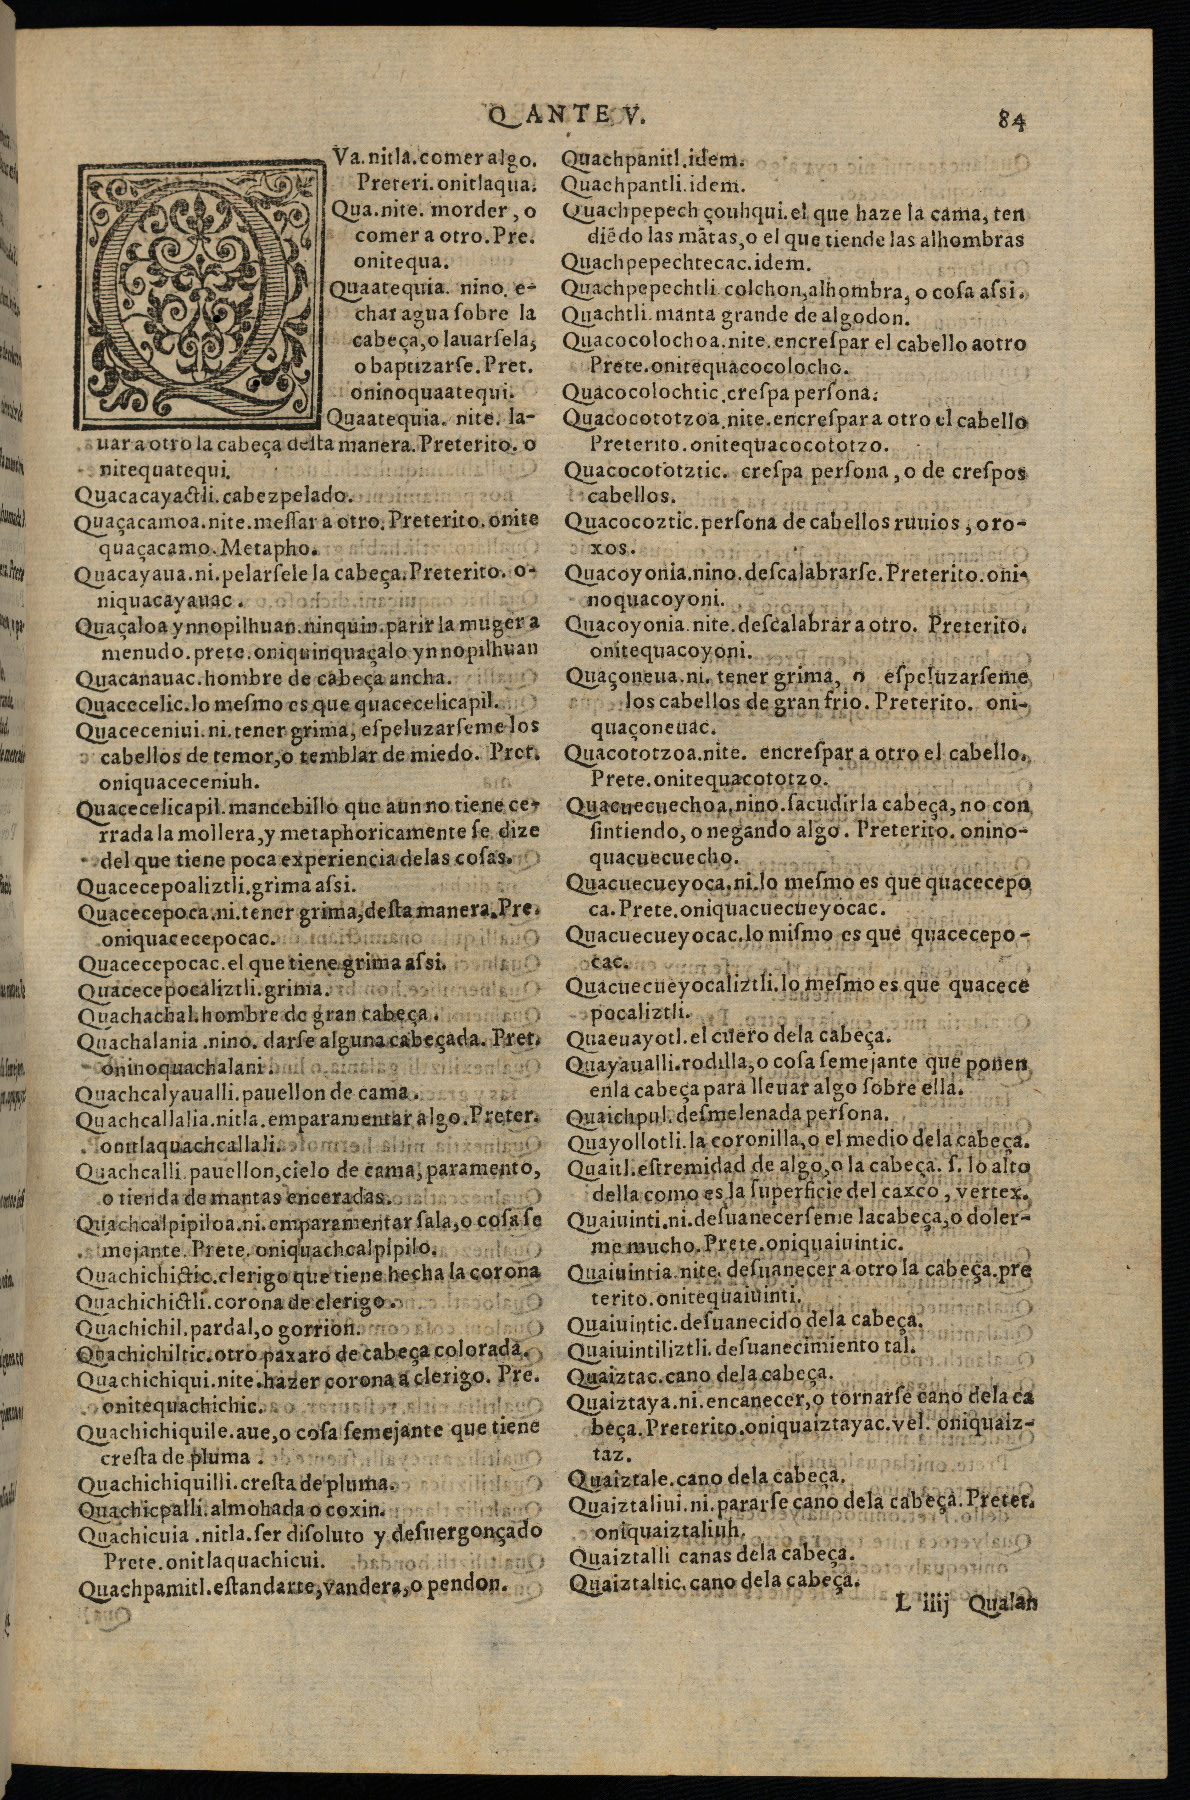 Q ANTE V.
84
QVa.nitla.comer algo.
Preteri.onitlaqua.
Qua.nite. morder, o
comer a otro.Pre.
onitequa.
Quaatequia. nino. e-
char agua ſobre la
cabeça,o lauarſela,
o baptizarſe. Pret.
oninoquaatequi.
Quaatequia. nite. la-
uar a otro la cabeça deſta manera. Preterito. o
nitequatequi.
Quacacayactli.cabezpelado.
Quaçacamoa.nite.meſſar a otro. Preterito. onite
quaçacamo. Metapho.
Quacayaua.ni.pelarſele la cabeça.Preterito. o-
niquacayauac.
Quaçaloa ynnopilhuan.ninquin.parir la muger a
menudo.prete.oniquinquaçalo ynnopilhuan
Quacanauac.hombre de cabeça ancha.
Quacecelic.lo meſmo es que quacecelicapil.
Quaceceniui.ni.tener grima, eſpeluzarſeme los
cabellos de temor,o temblar de miedo. Pret.
oniquaceceniuh.
Quacecelicapil.mancebillo que aun no tiene ce-
rrada la mollera,y metaphoricamente ſe dize
del que tiene poca experiencia delas coſas.
Quacecepoaliztli.grima aſsi.
Quacecepoca.ni.tener grima,deſta manera.Pre.
oniquacecepocac.
Quacecepocac.el que tiene grima aſsi.
Quacecepocaliztli.grima.
Quachachal.hombre de gran cabeça.
Quachalania.nino. darſe alguna cabeçada. Pret.
oninoquachalani.
Quachcalyaualli.pauellon de cama.
Quachcallalia.nitla.emparamentar algo. Preter.
onitlaquachcallali.
Quachcalli.pauellon,cielo de cama, paramento,
o tienda de mantas enceradas.
Quachcalpipiloa.ni.emparamentar ſala,o coſa ſe
mejante. Prete. oniquachcalpipilo.
Quachichictic.clerigo que tiene hecha la corona
Quachichictli.corona de clerigo.
Quachichil.pardal,o gorrion.
Quachichiltic.otro paxaro de cabeça colorada.
Quachichiqui.nite.hazer corona a clerigo. Pre.
onitequachichic.
Quachichiquile.aue,o coſa ſemejante que tiene
creſta de pluma.
Quachichiquilli.creſta de pluma.
Quachicpalli.almohada o coxin.
Quachicuia.nitla.ſer diſoluto y deſuergonçado
Prete.onitlaquachicui.
Quachpamitl.eſtandarte,vandera,o pendon.
Quachpanitl.idem.
Quachpantli.idem.
Quachpepech çouhqui.el que haze la cama, ten
diẽdo las mãtas,o el que tiende las alhombras
Quachpepechtecac.idem.
Quachpepechtli colchon,alhombra, o coſa aſsi.
Quachtli.manta grande de algodon.
Quacocolochoa.nite.encreſpar el cabello aotro
Prete.onitequacocolocho.
Quacocolochtic.creſpa perſona.
Quacocototzoa.nite.encreſpar a otro el cabello
Preterito.onitequacocototzo.
Quacocototztic. creſpa perſona, o de creſpos
cabellos.
Quacocoztic.perſona de cabellos ruuios, o ro-
xos.
Quacoyonia.nino.deſcalabrarſe.Preterito.oni-
noquacoyoni.
Quacoyonia.nite.deſcalabrar a otro. Preterito.
onitequacoyoni.
Quaçoneua.ni. tener grima, o eſpeluzarſeme
los cabellos de gran frio. Preterito. oni-
quaçoneuac.
Quacototzoa.nite. encreſpar a otro el cabello.
Prete.onitequacototzo.
Quacuecuechoa.nino.ſacudir la cabeça, no con
ſintiendo, o negando algo. Preterito. onino-
quacuecuecho.
Quacuecueyoca.ni.lo meſmo es que quacecepo
ca.Prete.oniquacuecueyocac.
Quacuecueyocac.lo miſmo es que quacecepo-
cac.
Quacuecueyocaliztli.lo meſmo es que quacece
pocaliztli.
Quaeuayotl.el cuero dela cabeça.
Quayaualli.rodilla,o coſa ſemejante que ponen
enla cabeça para lleuar algo ſobre ella.
Quaichpul.deſmelenada perſona.
Quayollotli.la coronilla,o el medio dela cabeça.
Quaitl.eſtremidad de algo,o la cabeça. ſ. lo alto
della como es la ſuperficie del caxco, vertex.
Quaiuinti.ni.deſuanecerſeme lacabeça,o doler-
me mucho.Prete.oniquaiuintic.
Quaiuintia.nite. deſuanecer a otro la cabeça.pre
terito.onitequaiuinti.
Quaiuintic.deſuanecido dela cabeça.
Quaiuintiliztli.deſuanecimiento tal.
Quaiztac.cano dela cabeça.
Quaiztaya.ni.encanecer,o tornarſe cano dela ca
beça.Preterito.oniquaiztayac.vel. oniquaiz-
taz.
Quaiztale.cano dela cabeça.
Quaiztaliui.ni.pararſe cano dela cabeça.Preter.
oniquaiztaliuh.
Quaiztalli canas dela cabeça.
Quaiztaltic.cano dela cabeça.
L iiij Qualan